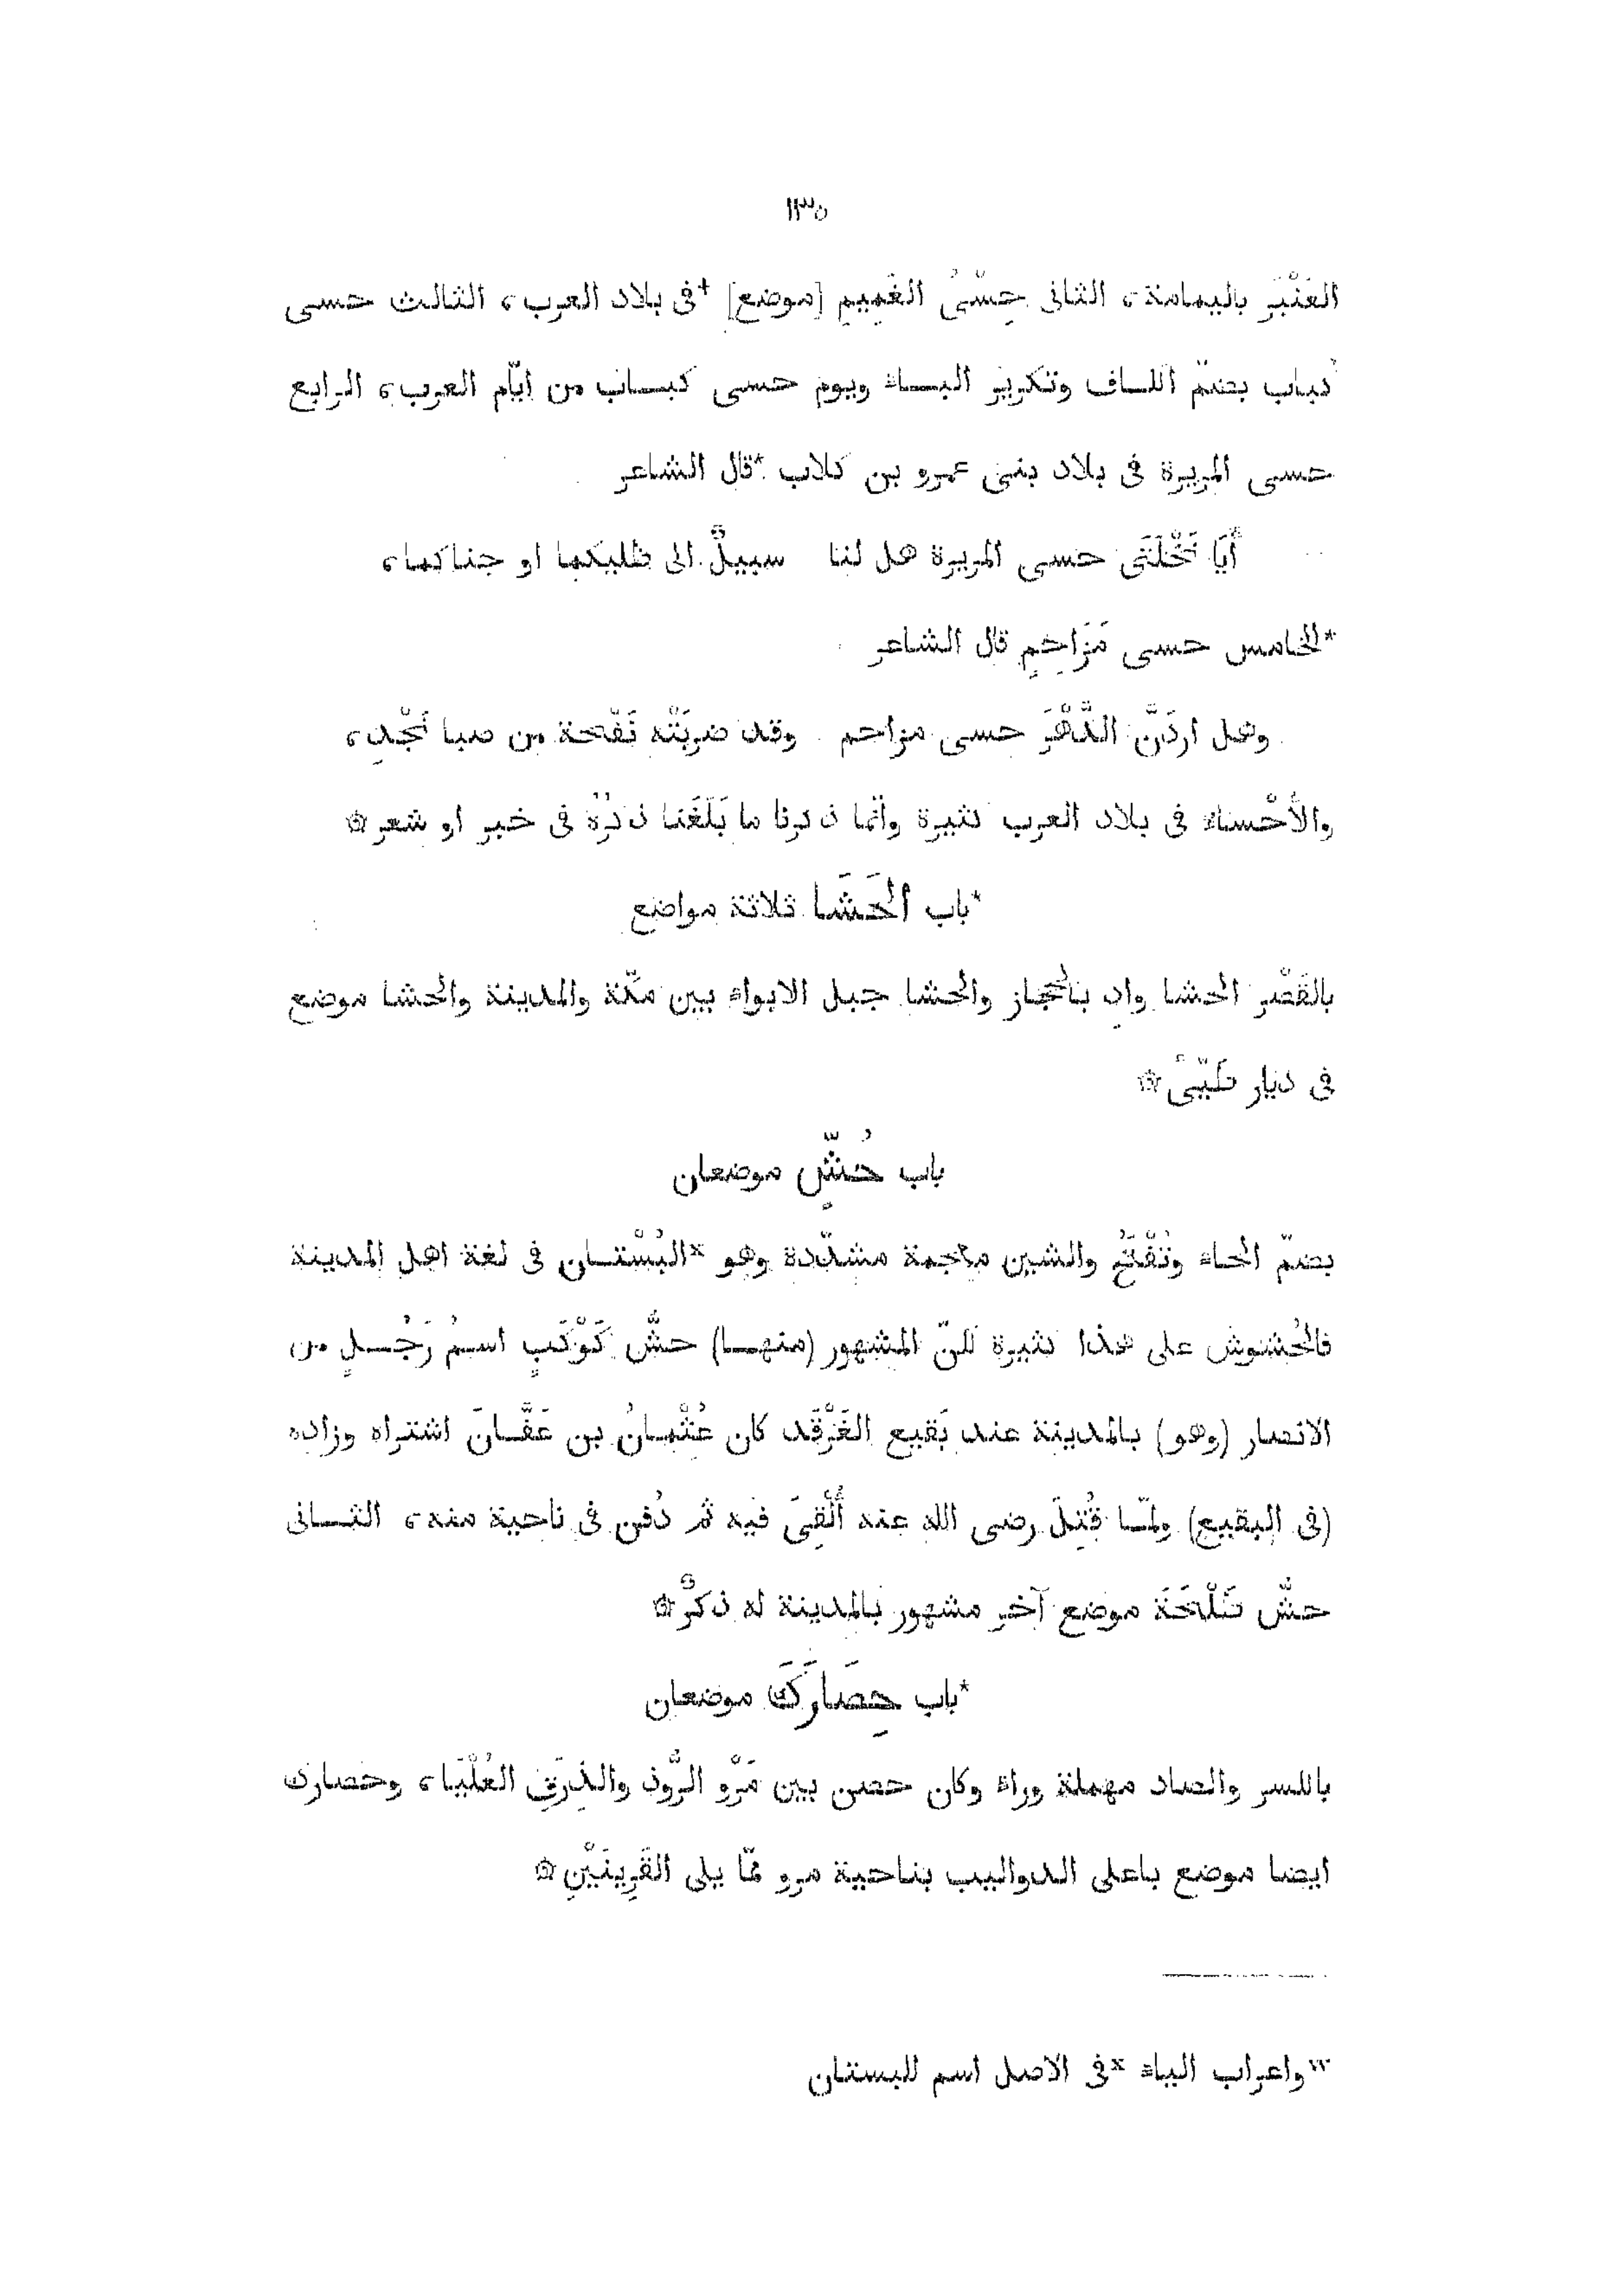 ١٣٥
العَنْبَر باليمامة، الثانى حِسْىُ الغَمِيمِ [موضع] +فى بلاد العرب، الثالث حسى
كباب بضمّ الكـاف وتكرير البـاء ويوم حسى كبـاب من ايّام العرب، الرابع
حسى المريرة فى بلاد بنى عمرو بن كلاب *قال الشاعر
أَيَا نَخْلَتَىْ حسى المريرة هل لنا سبيلٌ الى ظليكما او جناكما،
*الخامس حسى مُزَاحِمٍ قال الشاعر
وهل اردَنَّ الدَّهْرَ حسى مزاحم وقد ضربَتْه نَفْحة من صبا نَجْدِ،
والأَحْساء فى بلاد العرب كثيرة وانّما ذكرنا ما بَلَغَنا ذكرُه فى خبر او شعر ۞
*باب الحَشَا ثلاثة مواضع
بالقَصْر الحشا وادٍ بالحجاز والحشا جبل الابواء بين مكّة والمدينة والحشا موضع
فى ديار طَيِّئ ۞
باب حُشٍّ موضعان
بضمّ الحاء وتُفْتَحُ والشين معجمة مشدّدة وهو ˣالبُسْتـان فى لغة اهل المدينة
فالحُشوش على هذا كثيرة لكنّ المشهور (منهـا) حشُّ كَوْكَبٍ اسمُ رَجُـلٍ من
الانصار (وهو) بالمدينة عند بَقيع الغَرْقَد كان عُثْمانُ بن عَفَّـانَ اشتراه وزاده
(فى البقيع) ولمّـا قُتِلَ رضى الله عنه أُلْقِىَ فيه ثمّ دُفن فى ناحية منه، الثـانى
حشُّ طَلْحَةَ موضع آخر مشهور بالمدينة له ذكرٌ ۞
*باب حِصَارَكَ موضعان
بالكسر والصاد مهملة وراء وكان حصن بين مَرْو الرُّوذ والذِرَقِ العُلْيَا، وحصارك
ايضا موضع باعلى الدواليب بناحية مرو ممّا يلى القَرِينَيْنِ ۞
ʷواعراب الياء ˣفى الاصل اسم للبستان